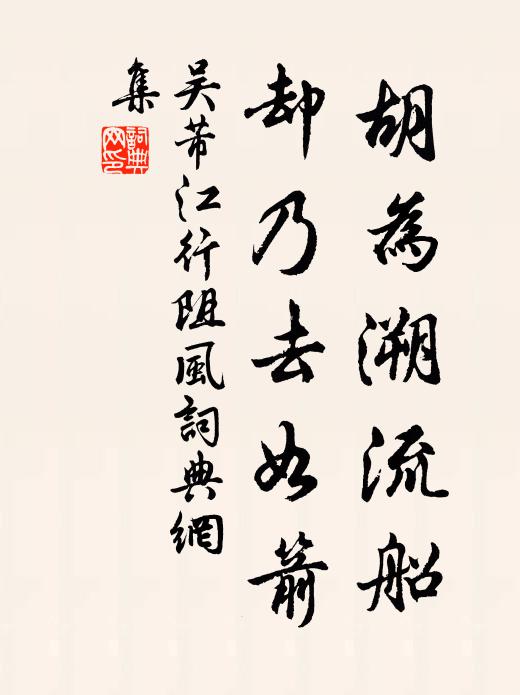 胡為溯流船
却乃去如箭
吳芾江行阻風詞典網
集
詞典
网印